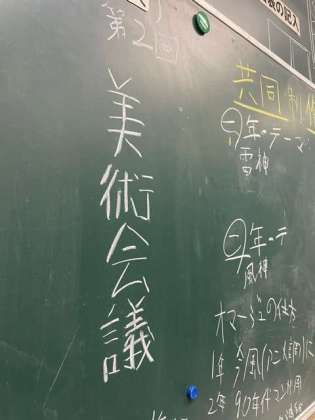 の記入
第2回
美術会議
共同制作
㊀年・テーマ
雷神
㊁年・テ
風神
オマージュの仕方
1年 今風(アニメ調)に
2年 90年代マンガ風